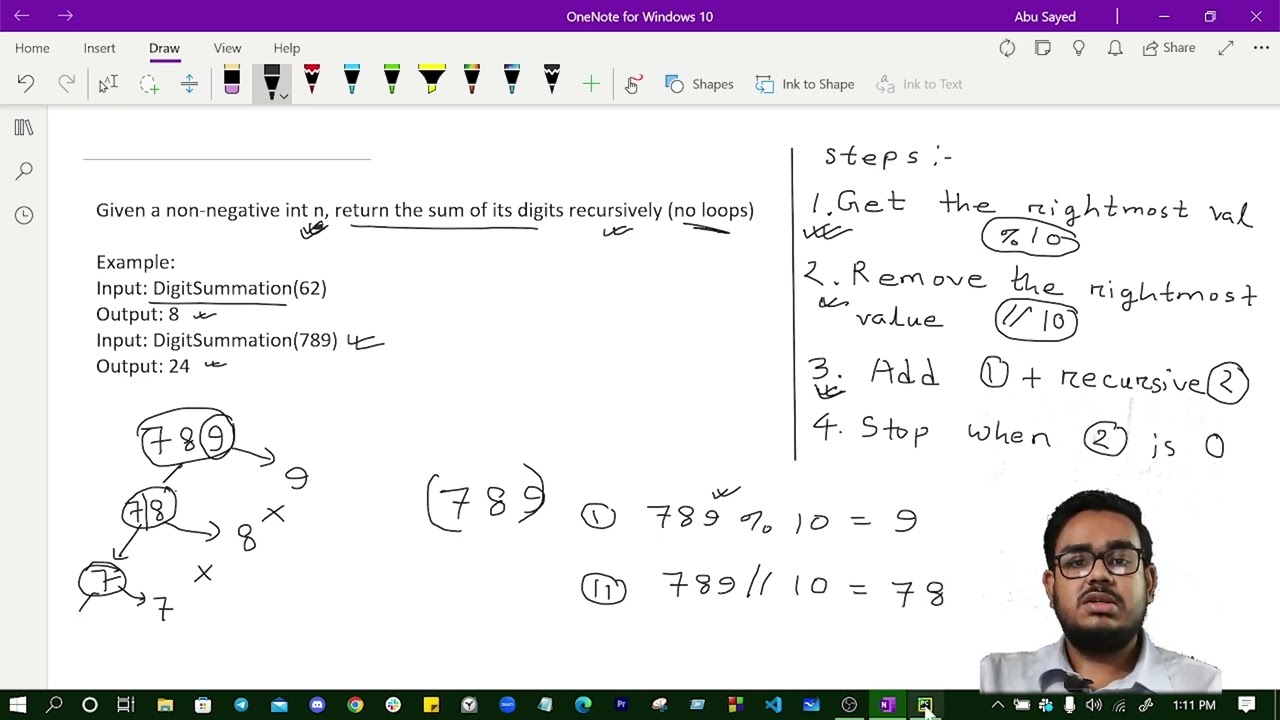 OneNote for Windows 10
Abu Sayed
Home Insert Draw View Help
Share
Shapes
Ink to Shape
Ink to Text
Given a non-negative int n, return the sum of its digits recursively (no loops)
Example:
Input: DigitSummation(62)
Output: 8
Input: DigitSummation(789)
Output: 24
789
9
78
8
7
7
steps :-
1. Get the rightmost val
% 10
2. Remove the rightmost
value // 10
3. Add ① + recursive ②
4. Stop when ② is 0
(789)
Ⓘ 789 % 10 = 9
Ⓘⓘ 789 // 10 = 78
1:11 PM